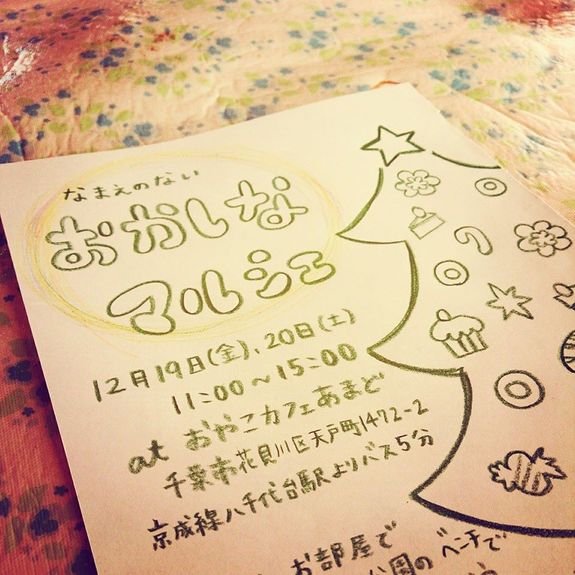 なまえのない
おかしな
マルシェ
12月19日(金)、20日(土)
11:00〜15:00
at おやこカフェあまど
千葉市花見川区天戸町1472-2
京成線八千代台駅よりバス5分
お部屋で
公園のベンチで